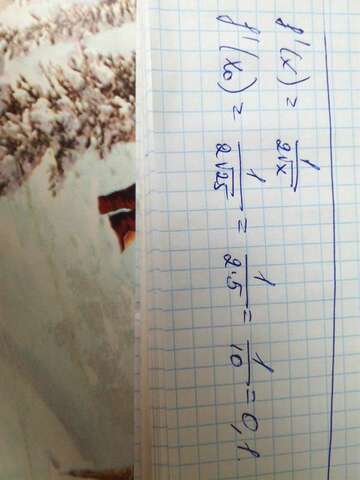 f'(x) = 1/2√x
f'(x₀) = 1/2√25 = 1/2·5 = 1/10 = 0,1.